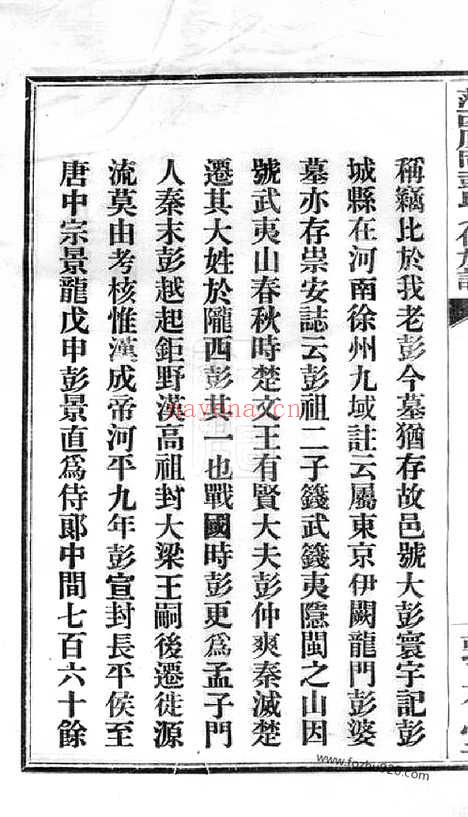 稱竊比於我老彭今墓猶存故邑號大彭寰宇記彭
城縣在河南徐州九域註云屬東京伊闕龍門彭婆
墓亦存崇安誌云彭祖二子籛武籛夷隱閩之山因
號武夷山春秋時楚文王有賢大夫彭仲爽秦滅楚
遷其大姓於隴西彭其一也戰國時彭更為孟子門
人秦末彭越起鉅野漢高祖封大梁王嗣後遷徙源
流莫由考核惟漢成帝河平九年彭宣封長平侯至
唐中宗景龍戊申彭景直為侍郎中間七百六十餘
nayona.cn
www.fozhu920.com